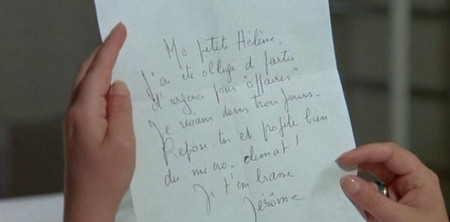 Ma petite Hélène,
J'ai été obligé de partir
d'urgence pour "affaires"
Je reviens dans trois jours.
Repose toi et profite bien
du micro-climat !
Je t'embrasse
Jérôme